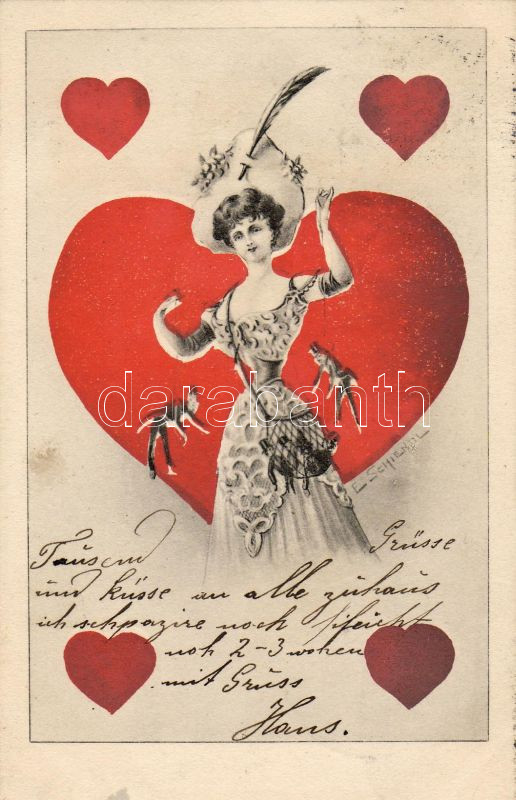 darabanth
Tausend Grüsse
und küsse an alle zuhaus
ich schpazire noch
noh 2-3 wohen
mit Grüss
Hans.